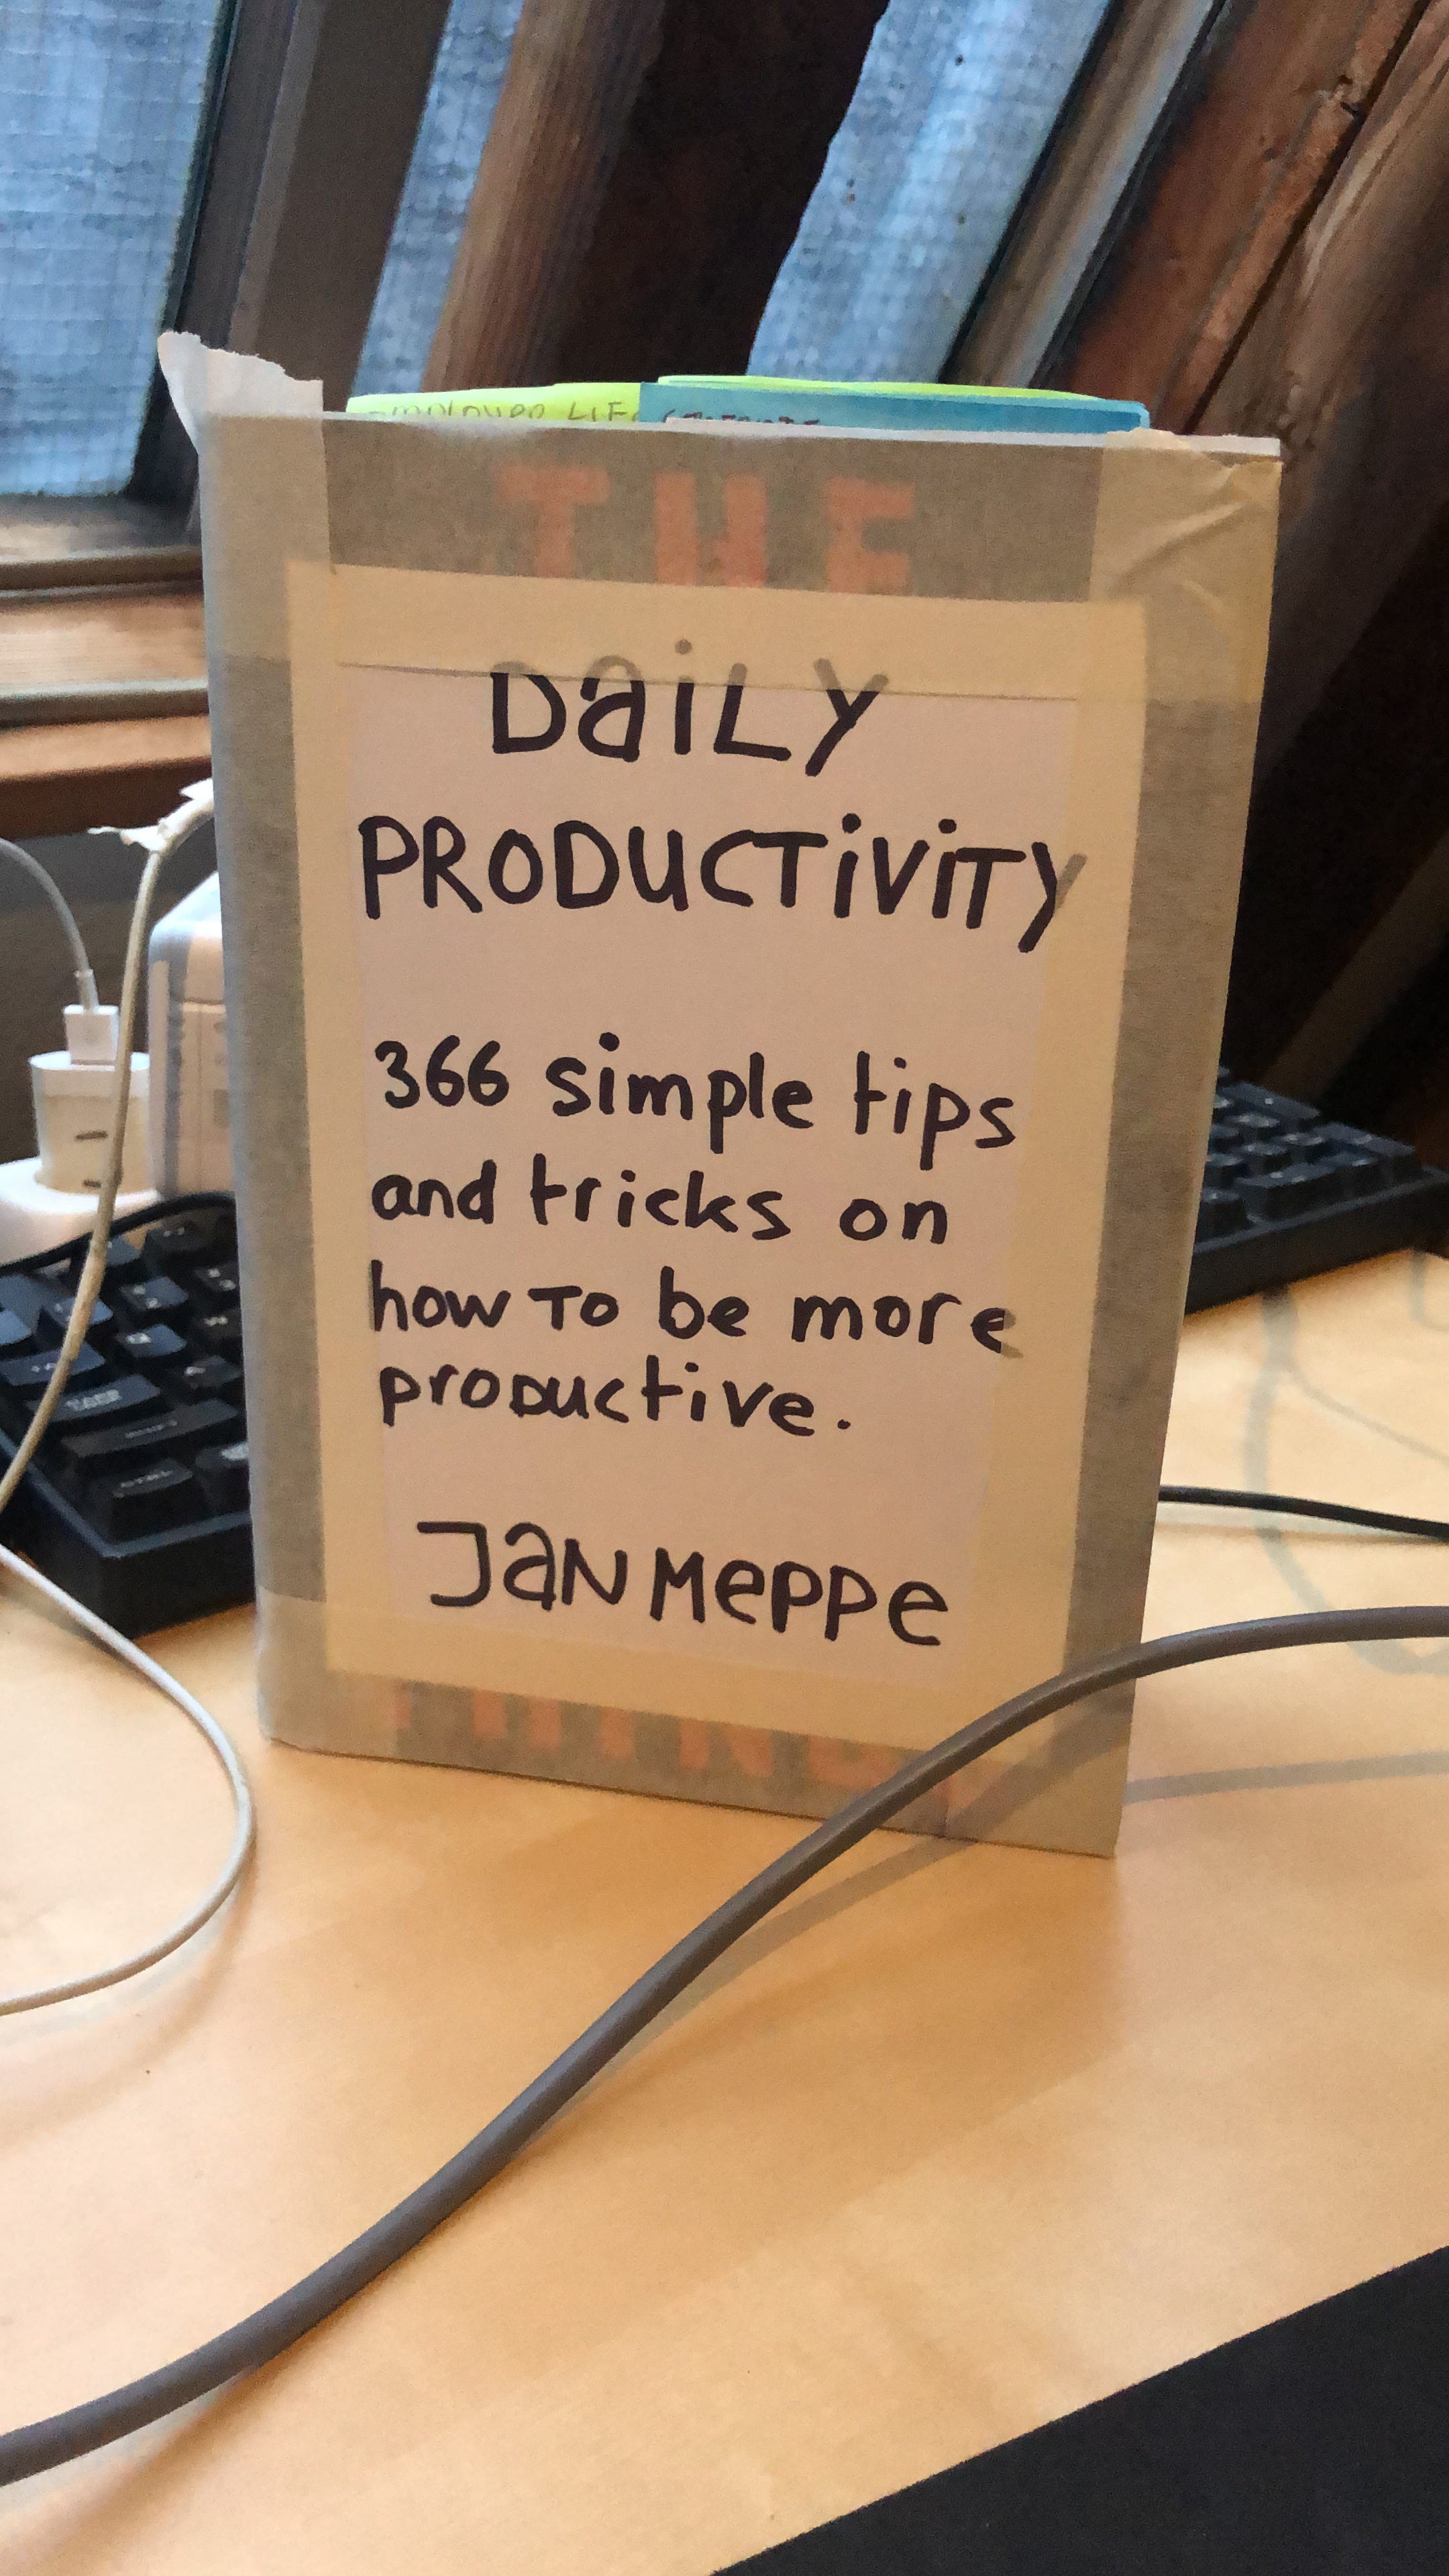 LIFE
THE
DaiLY
PRODUCTiViTY
366 simple tips
and tricks on
how To be more
productive.
JaN Meppe